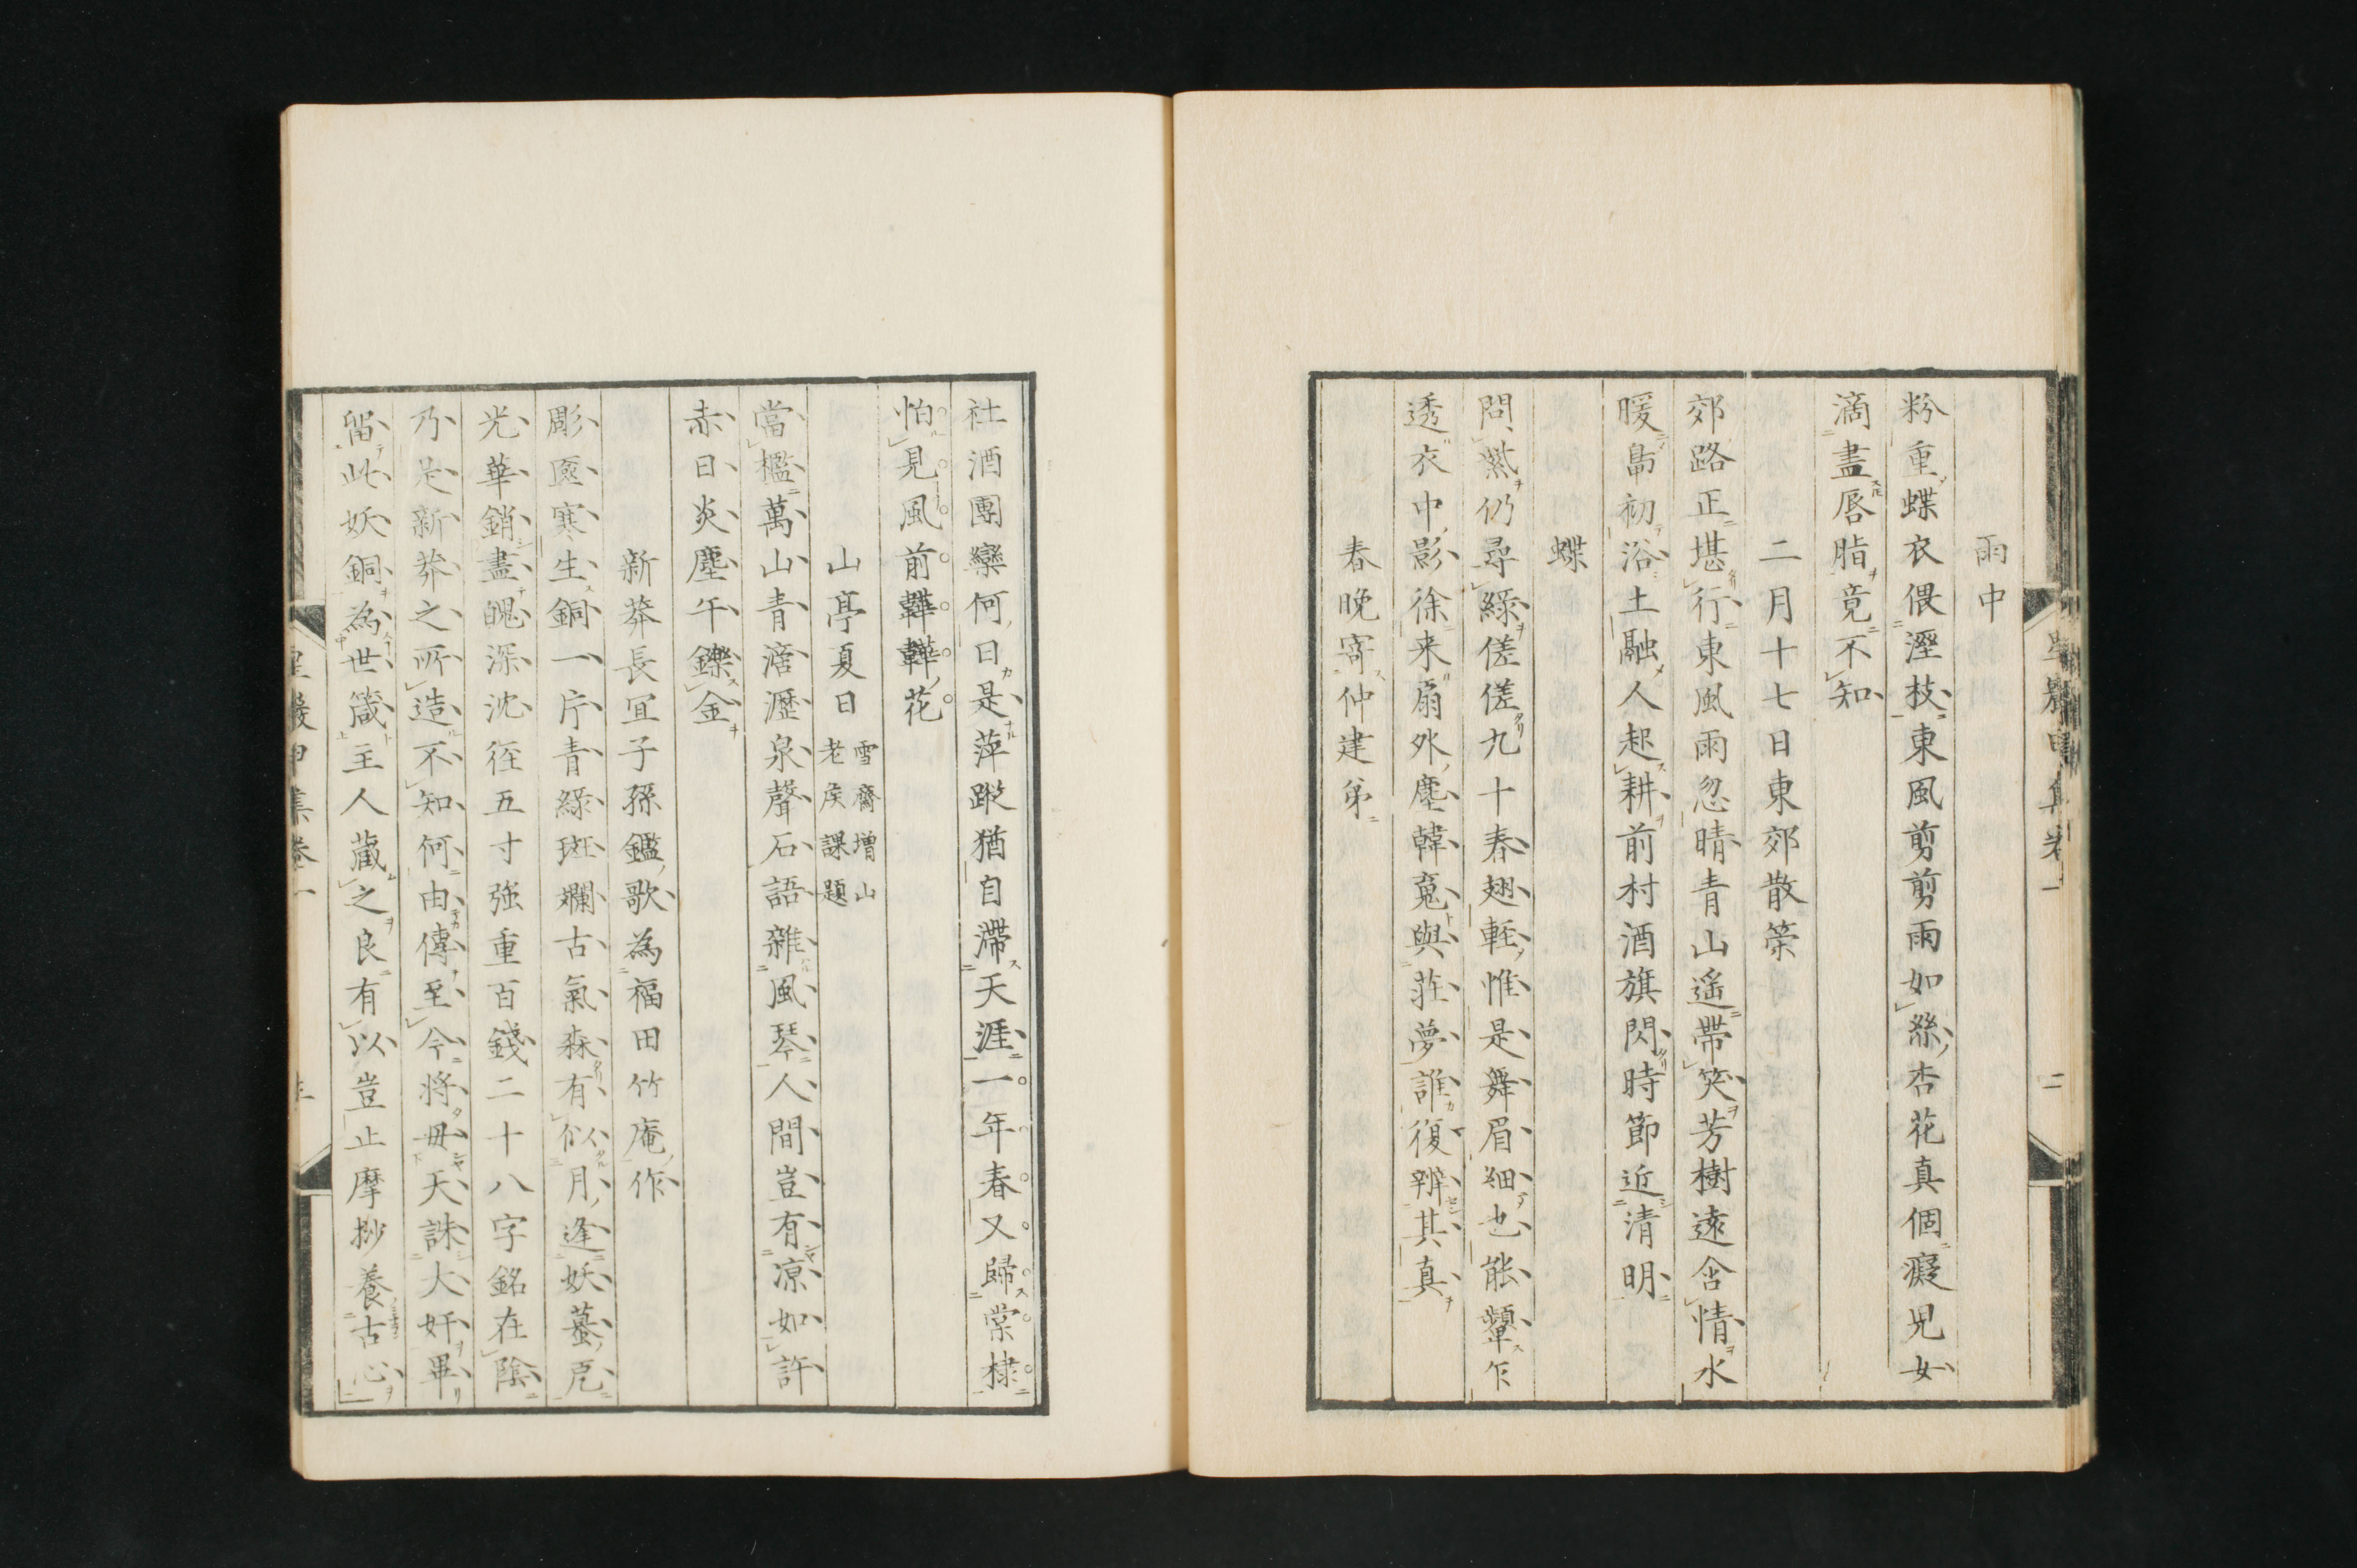 雨中
粉重蝶衣偎溼枝東風剪剪雨如絲杏花真個癡児女
滴盡唇脂竟不知
二月十七日東郊散策
郊路正堪行東風雨忽晴青山遙帶笑芳樹遠含情水
暖鳧初浴土融人起耕前村酒旗閃時節近清明
蝶
問紫仍尋綠傞傞九十春翅輕惟是舞眉細也能顰乍
透衣中影徐来扇外塵韓寃與莊夢誰復辨其真
春晚寄仲建弟
社酒團欒何日是萍蹤猶自滯天涯一年春又歸棠棣
怕見風前韡韡花
山亭夏日雪齋増山老矦課題
當檻萬山青滴瀝泉聲石語雜風琴人間豈有凉如許
赤日炎塵午鑠金
新莽長宜子孫鑑歌為福田竹庵作
彫匳寒生銅一片青綠斑斕古氣森有似月逢妖蟇厄
光華銷盡魄深沈徑五寸強重百錢二十八字銘在陰
乃是新莽之所造不知何由傳至今将毋天誅大奸畢
留此妖銅為世箴主人藏之良有以豈止摩抄養古心
星巖甲集卷一